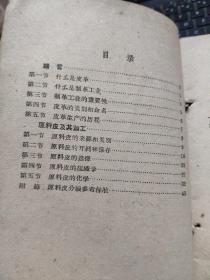 目录
緒言
第一节 什么是皮革
第二节 什么是制革工业
第三节 制革工业的重要性
第四节 皮革的类别和命名
第五节 皮革生产的历程
原料皮及其加工
第一节 原料皮的来源和类别
第二节 原料皮的开剥和保存
第三节 原料皮的造作
第四节 原料皮的组織学
第五节 原料皮的化学
附錄 原料皮分級参考标准